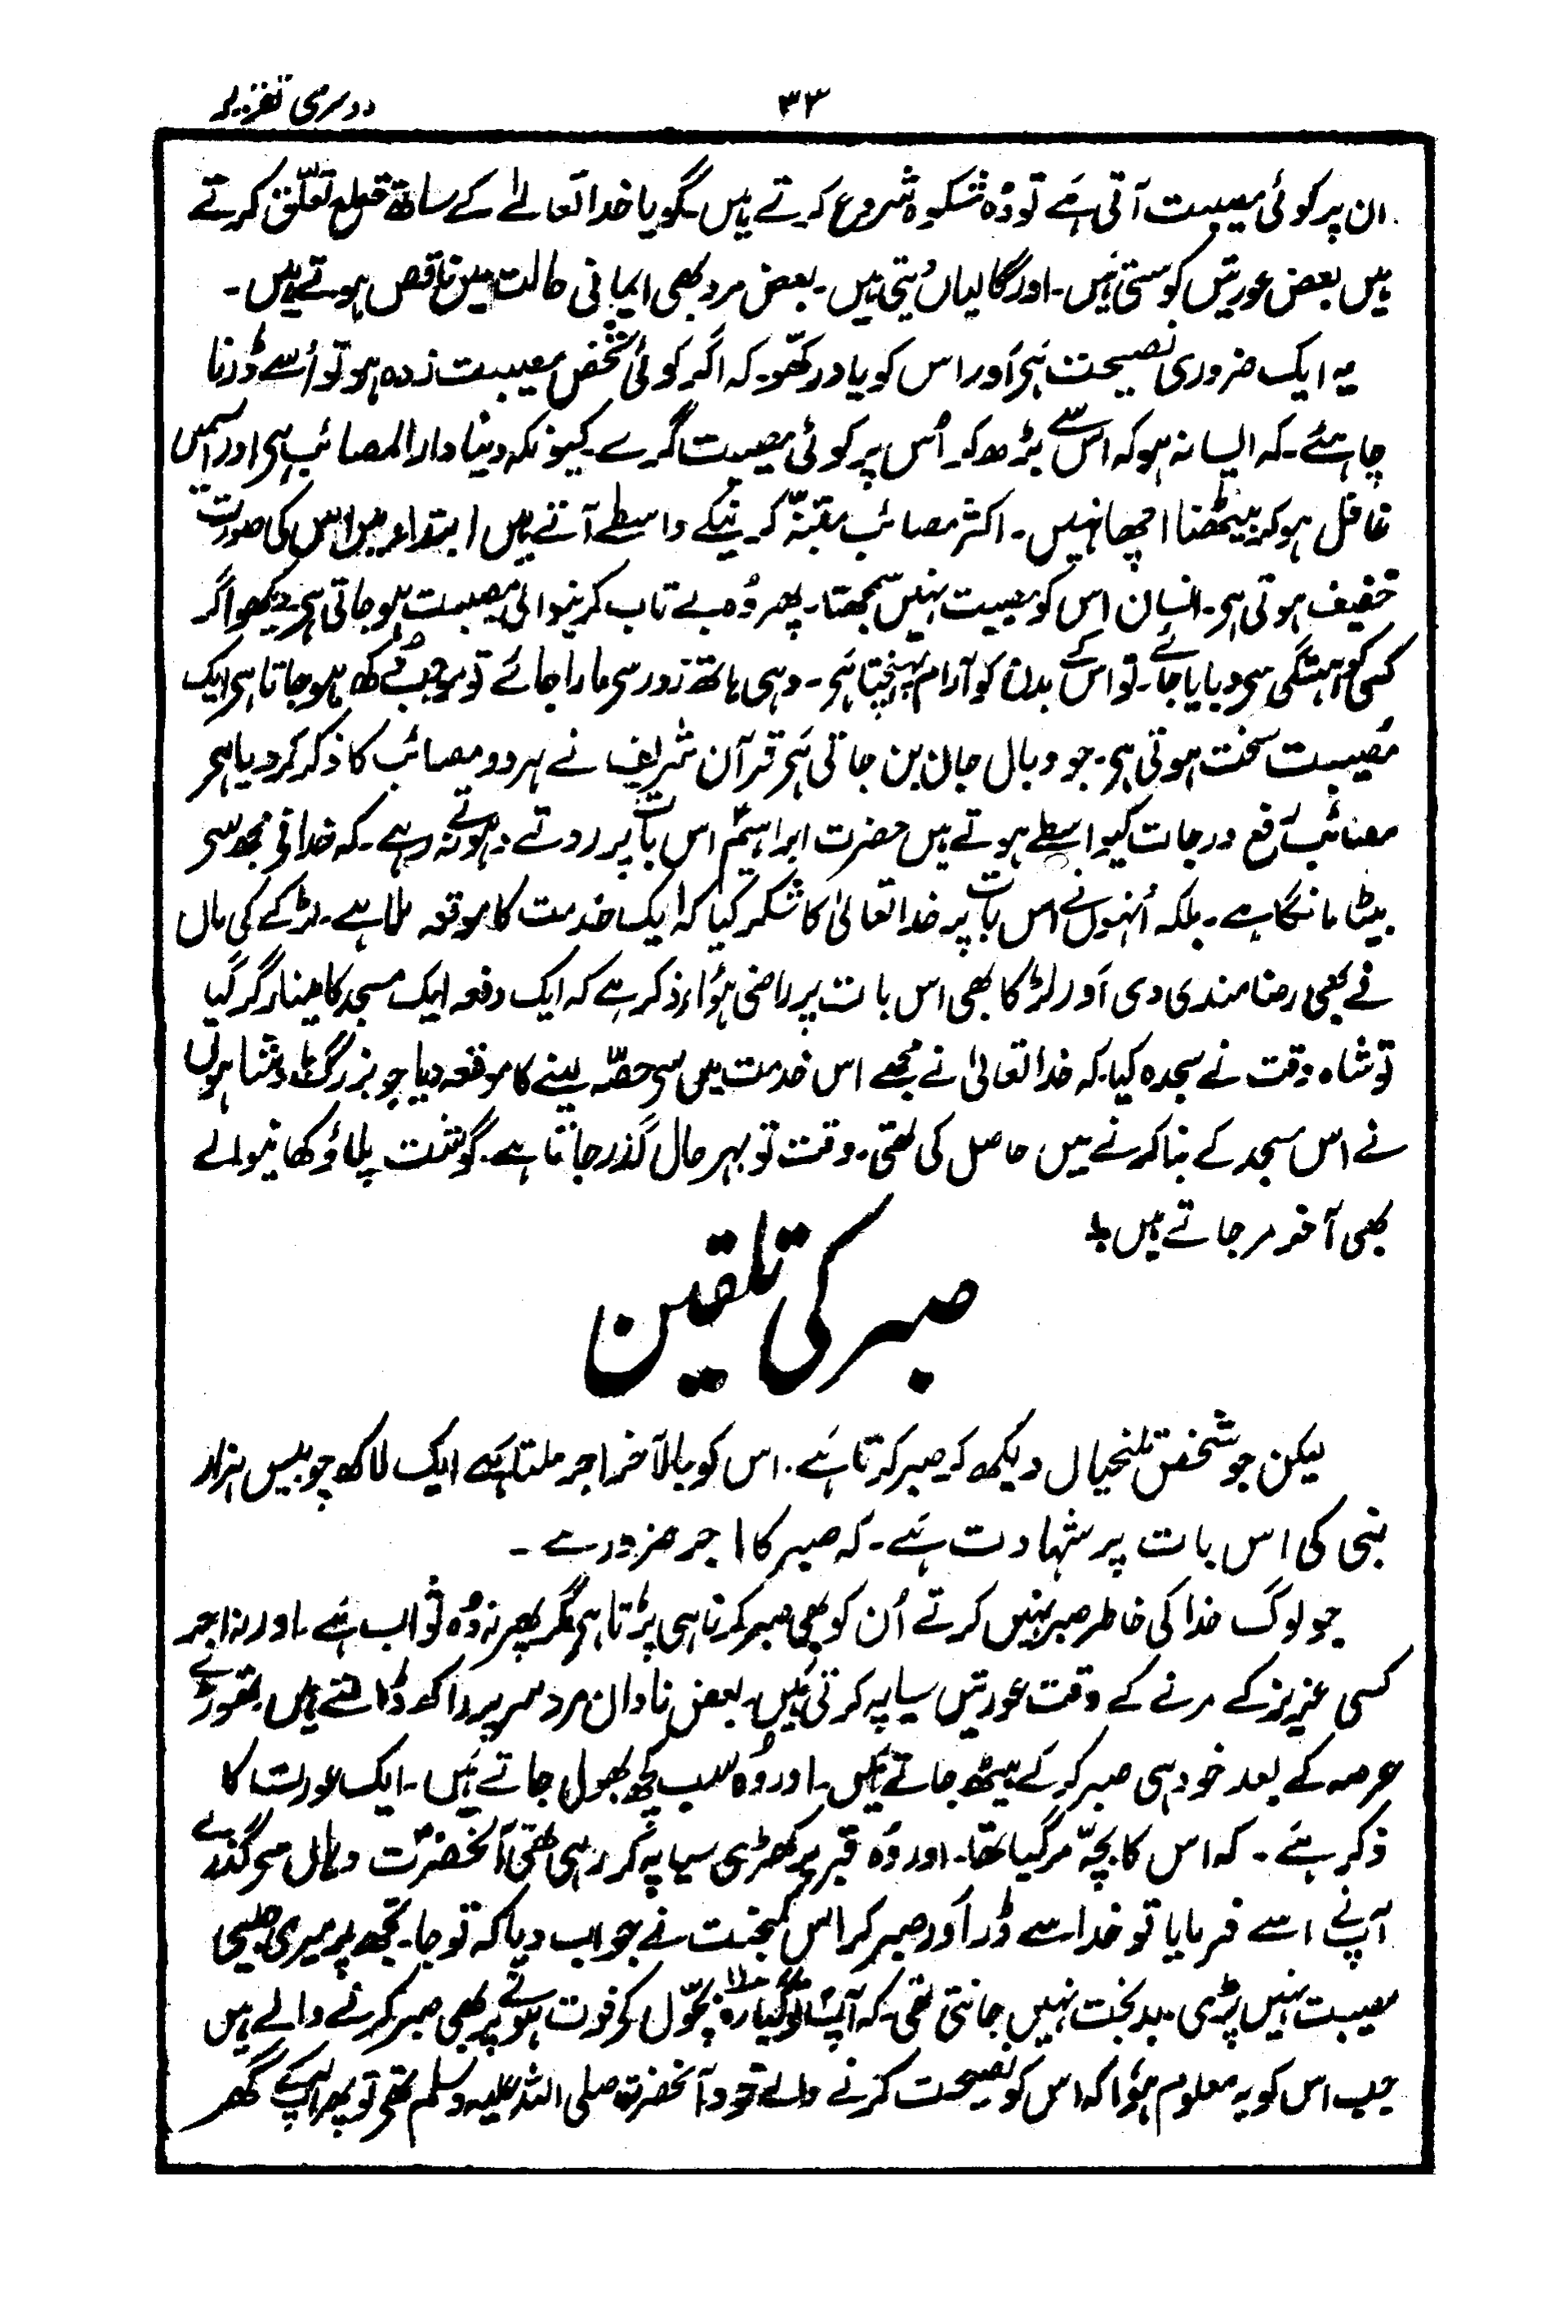 دوسری تقریر
۳۳
ان پر کوئی مصیبت آتی ہے تو وُہ شکوہ شروع کرتے ہیں۔ گویا خدا تعالےٰ کے ساتھ قطع تعلّق کرتے
ہیں بعض عورتیں کوستی ہیں۔ اور گالیاں دیتی ہیں۔ بعض مرد بھی ایمانی حالت میں ناقص ہوتے ہیں۔
یہ ایک ضروری نصیحت ہَے اَور اس کو یاد رکھّو۔ کہ اگر کوئی شخص مصیبت زدہ ہو تو اُسے ڈرنا
چاہئے۔ کہ ایسا نہ ہو کہ اس سے بڑھ کر اُس پر کوئی مصیبت گرے۔ کیونکہ دنیا دار المصائب ہے اور اسمیں
غافل ہو کر بیٹھنا اچھا نہیں۔ اکثر مصائب متنبّہ کرنیکے واسطے آتے ہیں ابتداء میں اس کی صورت
خفیف ہوتی ہے۔ انسان اس کو مصیبت نہیں سمجھتا۔ پھر وُہ بے تاب کرنیوالی مصیبت ہو جاتی ہے۔ دیکھو اگر
کسی کو آہستگی سے دبایا جائے۔ تو اس کے بدن کو آرام پہنچتا ہَے۔ وہی ہاتھ زور سے مارا جائے تو موجب دُکھ ہو جاتا ہے ایک
مُصیبت سخت ہوتی ہے۔ جو وبال جان بن جاتی ہَے قرآن شریف نے ہر دو مصائب کا ذکر کر دیا ہے
مصائب رفع درجات کیواسطے ہوتے ہیں حضرت ابراہیمؑ اس بات پر روتے دہوتے نہ رہے۔ کہ خدا نے مجھ سے
بیٹا مانگا ہے۔ بلکہ اُنہوں نے اس بات پر خدا تعالیٰ کا شکر کیا کہ ایک خدمت کا موقعہ ملا ہے۔ لڑکے کی ماں
نے بھی رضامندی دی اَور لڑکا بھی اس بات پر راضی ہؤا۔ ذکر ہے کہ ایک دفعہ ایک مسجد کا مینار گر گیا
تو شاہ وقت نے سجدہ کیا۔ کہ خدا تعالیٰ نے مجھے اس خدمت میں سے حصّہ لینے کا موقعہ دیا جو بزرگ بادشاہوں
نے اس مسجد کے بنا کرنے میں حاصل کی تھی۔ وقت تو بہر حال گذر جاتا ہے۔ گوشت پلاؤ کھانیوالے
بھی آخر مر جاتے ہیں ؞
صبر کی تلقین
لیکن جو شخص تلخیاں دیکھ کر صبر کرتا ہَے۔ اس کو بالآخر اجر ملتا ہَے ایک لاکھ چوبیس ہزار
نبی کی اس بات پر شہادت ہَے۔ کہ صبر کا اجر ضرور ہے۔
جو لوگ خدا کی خاطر صبر نہیں کرتے اُن کو بھی صبر کرنا ہی پڑتا ہے مگر پھر نہ وُہ ثواب ہَے۔ اور نہ اجر
کسی عزیز کے مرنے کے وقت عورتیں سیاپہ کرتی ہَیں۔ بعض نادان مرد سر پر راکھ ڈالتے ہیں۔ تھوڑے
عرصہ کے بعد خود ہی صبر کر کے بیٹھ جاتے ہَیں۔ اور وُہ سب کچھ بھول جاتے ہَیں۔ ایک عورت کا
ذکر ہَے۔ کہ اس کا بچہّ مر گیا تھا۔ اور وُہ قبر پر کھڑی سیاپہ کر رہی تھی آنحضرتؐ وہاں سے گذرے
آپؐ نے اسے فرمایا تو خدا سے ڈر اَور صبر کر اس کمبخت نے جواب دیا کہ تو جا۔ تجھ پر میری جیسی
مصیبت نہیں پڑی۔ بدبخت نہیں جانتی تھی۔ کہ آپؐ تو گیارہ ۱۱ بچوّں کے فوت ہونے پر بھی صبر کرنے والے ہیں
جب اس کو یہ معلوم ہؤا کہ اس کو نصیحت کرنے والے خود آنحضرت صلی اللہ علیہ وسلم تھے تو پھر آپؐ کے گھر